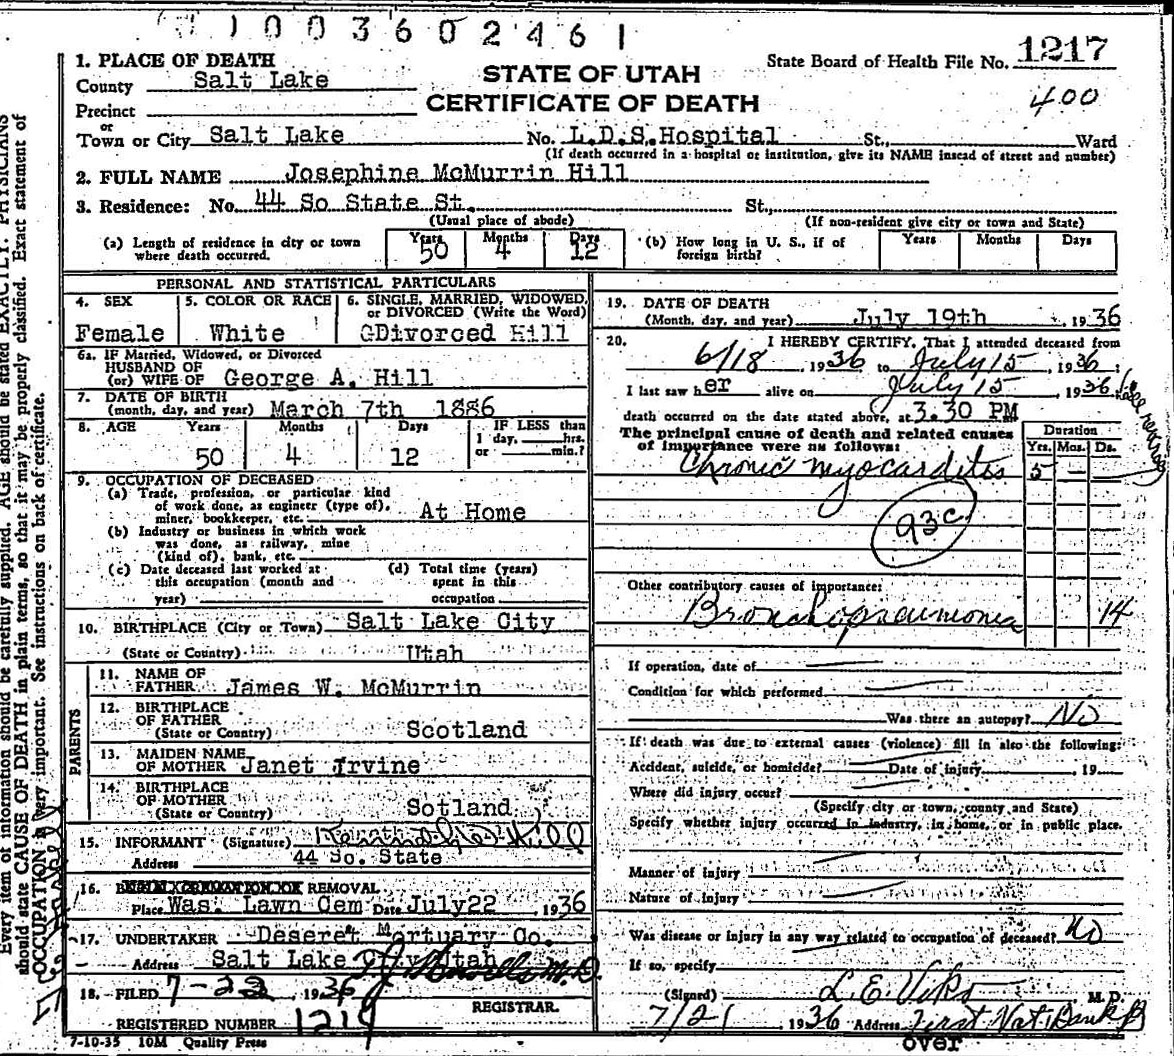 1003602461
1. PLACE OF DEATH
County Salt Lake
STATE OF UTAH
CERTIFICATE OF DEATH
State Board of Health File No. 1217
400
Precinct
or
Town or City Salt Lake No. L.D.S. Hospital St., Ward
(If death occurred in a hospital or institution, give its NAME insead of street and number)
2. FULL NAME Josephine McMurrin Hill
3. Residence: No. 44 So State St. St.,
(Usual place of abode) (If non-resident give city or town and State)
(a) Length of residence in city or town where death occurred. Years 50 Months 4 Days 12
(b) How long in U. S., if of foreign birth? Years Months Days
PERSONAL AND STATISTICAL PARTICULARS
4. SEX Female
5. COLOR OR RACE White
6. SINGLE, MARRIED, WIDOWED, or DIVORCED (Write the Word)
GDivorced Hill
6a. IF Married, Widowed, or Divorced
HUSBAND OF
(or) WIFE OF George A. Hill
7. DATE OF BIRTH
(month, day, and year) March 7th 1886
8. AGE Years 50 Months 4 Days 12
IF LESS than
1 day, hrs.
or min.?
9. OCCUPATION OF DECEASED
(a) Trade, profession, or particular kind
of work done, as engineer (type of),
miner, bookkeeper, etc. At Home
(b) Industry or business in which work
was done, as railway, mine
(kind of), bank, etc.
(c) Date deceased last worked at
this occupation (month and
year)
(d) Total time (years)
spent in this
occupation
10. BIRTHPLACE (City or Town) Salt Lake City
(State or Country) Utah
PARENTS
11. NAME OF
FATHER James W. McMurrin
12. BIRTHPLACE
OF FATHER
(State or Country) Scotland
13. MAIDEN NAME
OF MOTHER Janet Irvine
14. BIRTHPLACE
OF MOTHER
(State or Country) Sotland
15. INFORMANT (Signature) Hill
Address 44 So. State
16. REMOVAL
Place Was. Lawn Cem Date July 22, 1936
17. UNDERTAKER Deseret Mortuary Co.
Address Salt Lake City Utah
18. FILED 7-22, 1936 M.D.
REGISTRAR.
REGISTERED NUMBER 1219
7-10-35 10M Quality Press
19. DATE OF DEATH
(Month, day, and year) July 19th, 1936
20. I HEREBY CERTIFY, That I attended deceased from
6/18, 1936 to July 15, 1936;
I last saw her alive on July 15, 1936
death occurred on the date stated above, at 3.30 PM
The principal cause of death and related causes
of importance were as follows:
Duration
Yrs. Mos. Ds.
Chronic myocarditis 5 —
93c
Other contributory causes of importance:
Bronchopneumonia 14
If operation, date of
Condition for which performed
Was there an autopsy? No
If death was due to external causes (violence) fill in also the following:
Accident, suicide, or homicide? Date of injury, 19
Where did injury occur?
(Specify city or town, county and State)
Specify whether injury occurred in industry, in home, or in public place.
Manner of injury
Nature of injury
Was disease or injury in any way related to occupation of deceased? No
If so, specify
(Signed) L. E. Viko M. D.
7/21 1936 Address First Nat Bank B
over
Every item of information should be carefully supplied. AGE should be stated EXACTLY. PHYSICIANS
should state CAUSE OF DEATH in plain terms, so that it may be properly classified. Exact statement of
OCCUPATION is very important. See instructions on back of certificate.